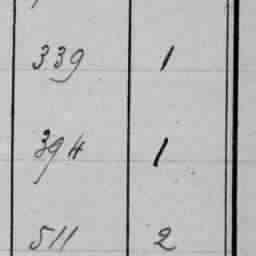 339 1
394 1
511 2